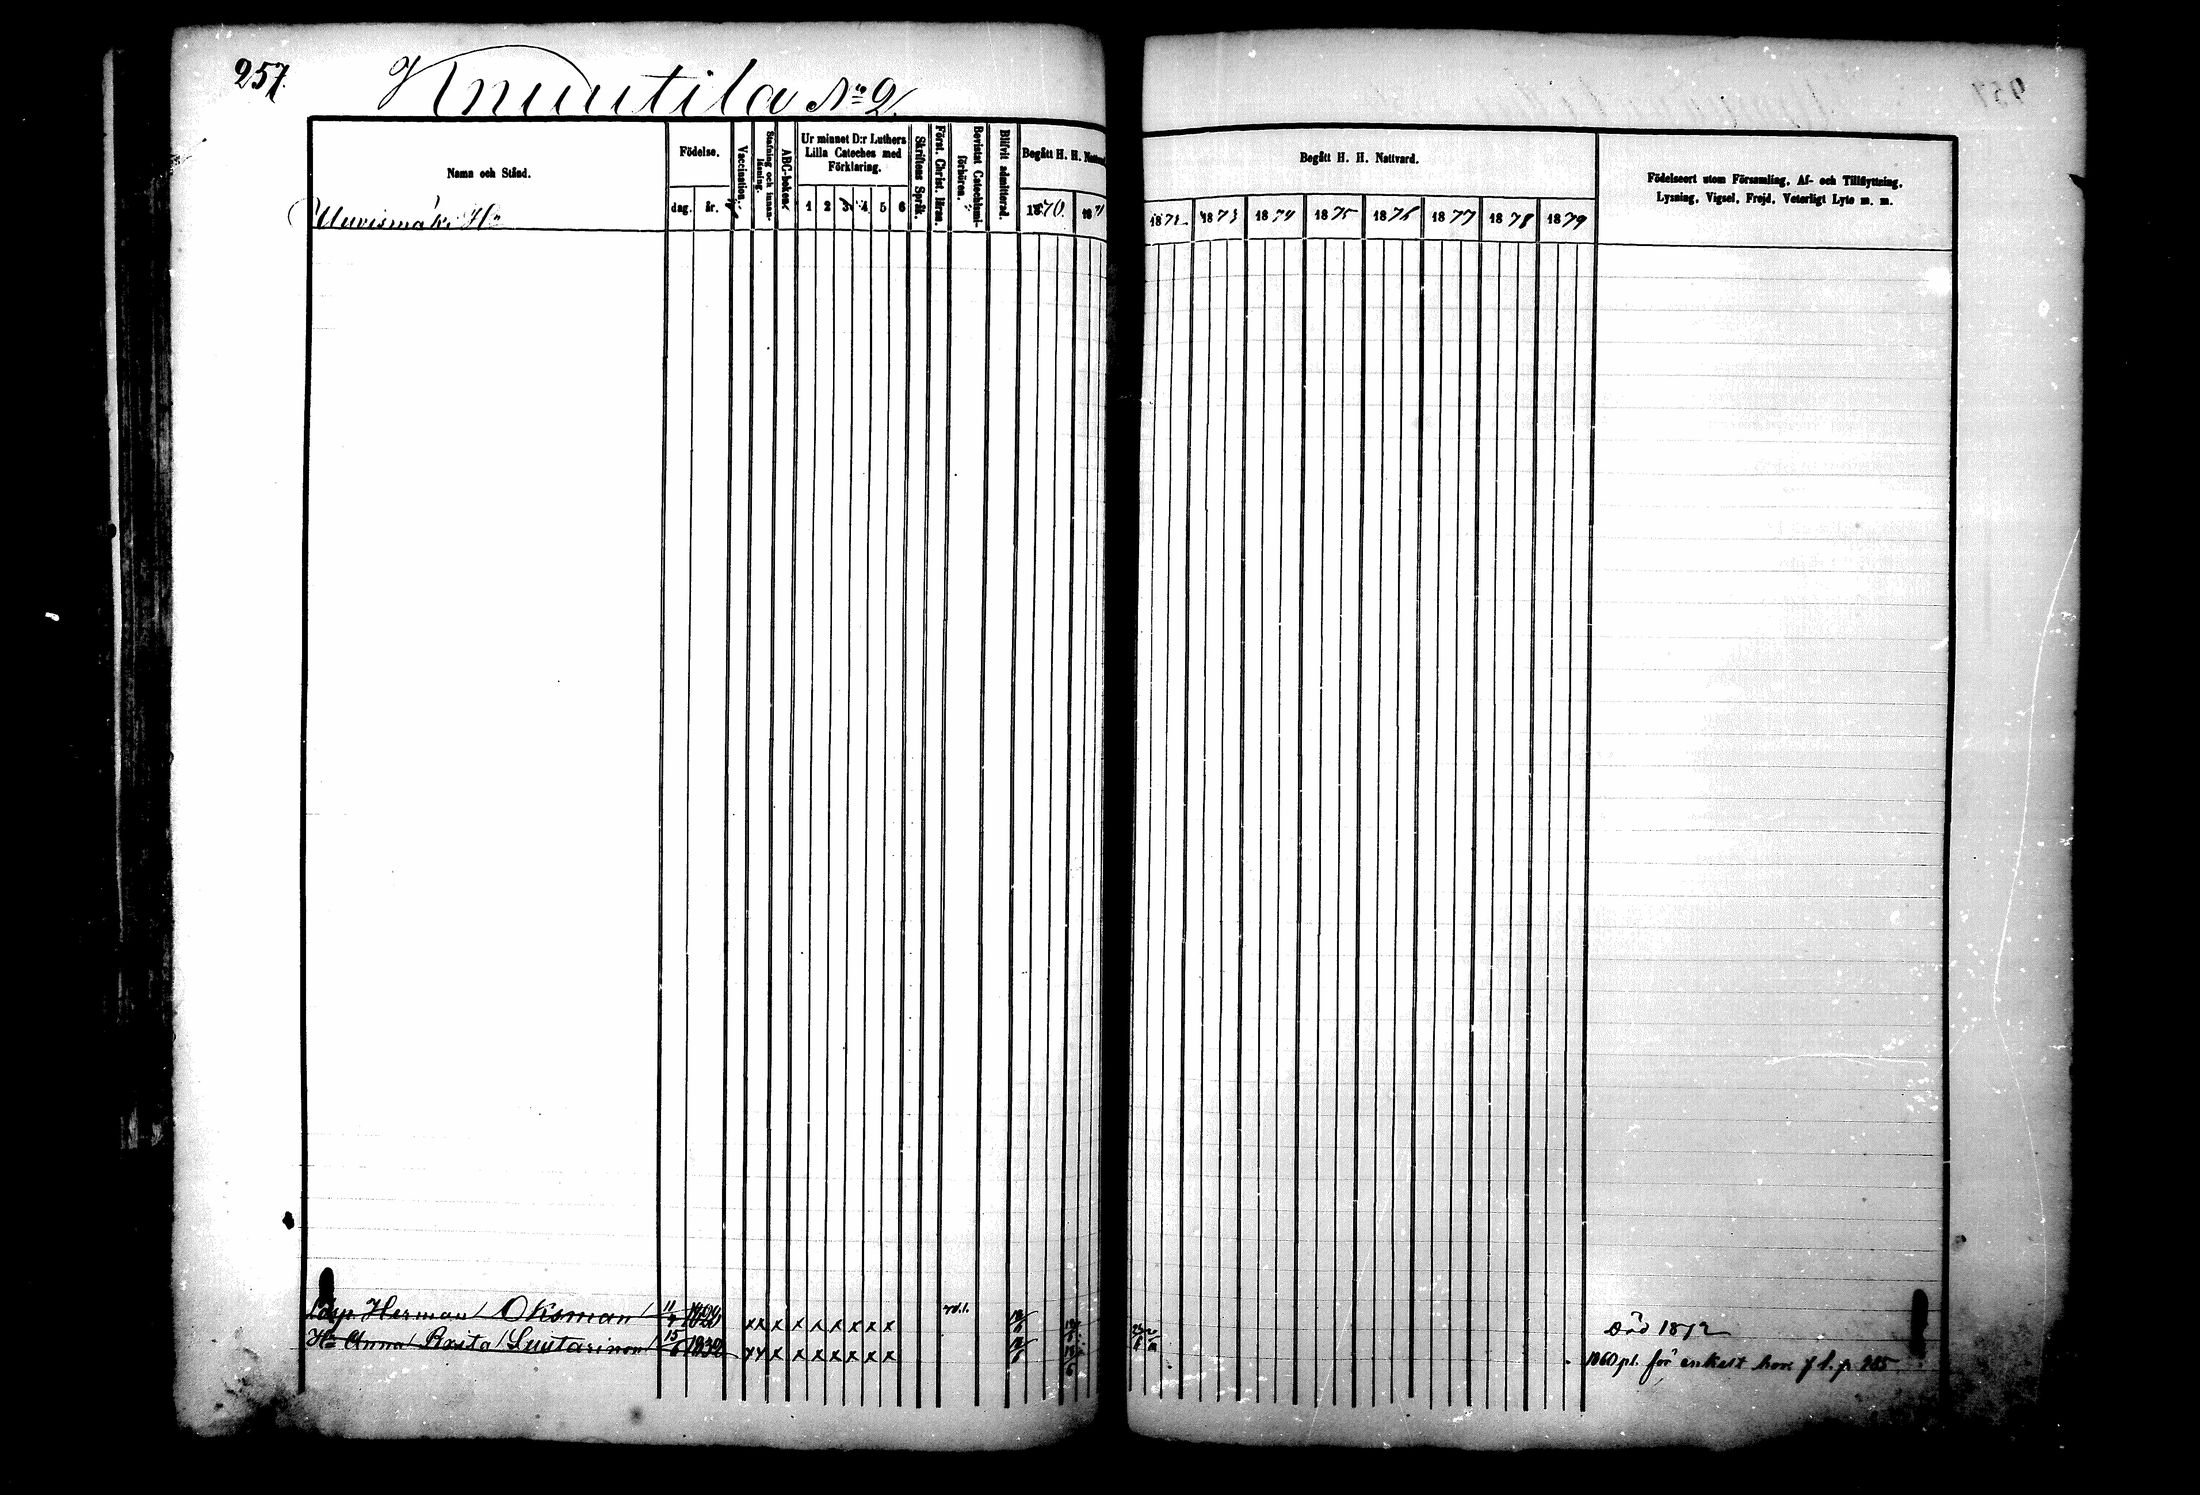 257.
Knuutila No 2.
Namn och Stånd.
Födelse.
dag. år.
Vaccination.
Stafning och innanläsning.
ABC-boken.
Ur minnet D:r Luthers Lilla Cateches med Förklaring.
1 2 3 4 5 6
Skriftens Språk.
Först. Christ. läran.
Bevistat Catechismiförhören.
Blifvit admitterad.
Begått H. H. Nattvard
1870. 1871
Begått H. H. Nattvard.
1872 1873 1874 1875 1876 1877 1878 1879
Födelseort utom Församling, Af- och Tillflyttning,
Lysning, Vigsel, Frejd, Veterligt Lyte m. m.
Herman Oksman 11
x x x x x x x x x
Död 1872
Hu Anna Brita Luutarinen 15/6 1832
x x x x x x x x x
1860 pl. för enkelt hor f. l. p. 285